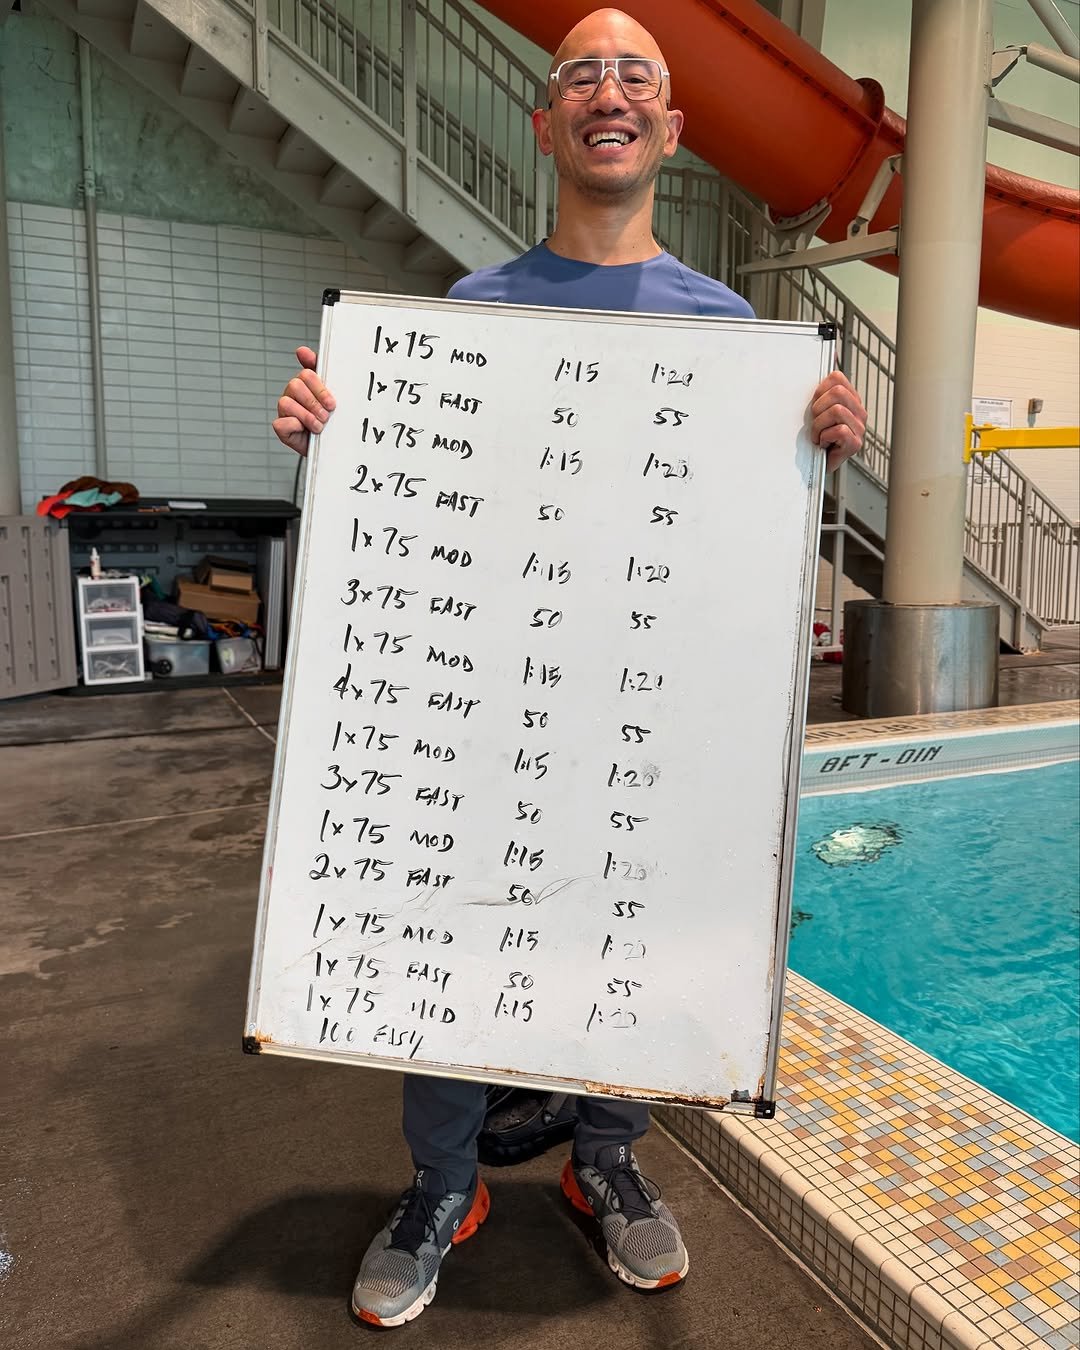 1x75 MOD 1:15 1:20
1x75 FAST 50 55
1x75 MOD 1:15 1:20
2x75 FAST 50 55
1x75 MOD 1:15 1:20
3x75 FAST 50 55
1x75 MOD 1:15 1:20
4x75 FAST 50 55
1x75 MOD 1:15 1:20
3x75 FAST 50 55
1x75 MOD 1:15 1:20
2x75 FAST 50 55
1x75 MOD 1:15 1:20
1x75 FAST 50 55
1x75 MOD 1:15 1:20
100 EASY
8FT-0IN